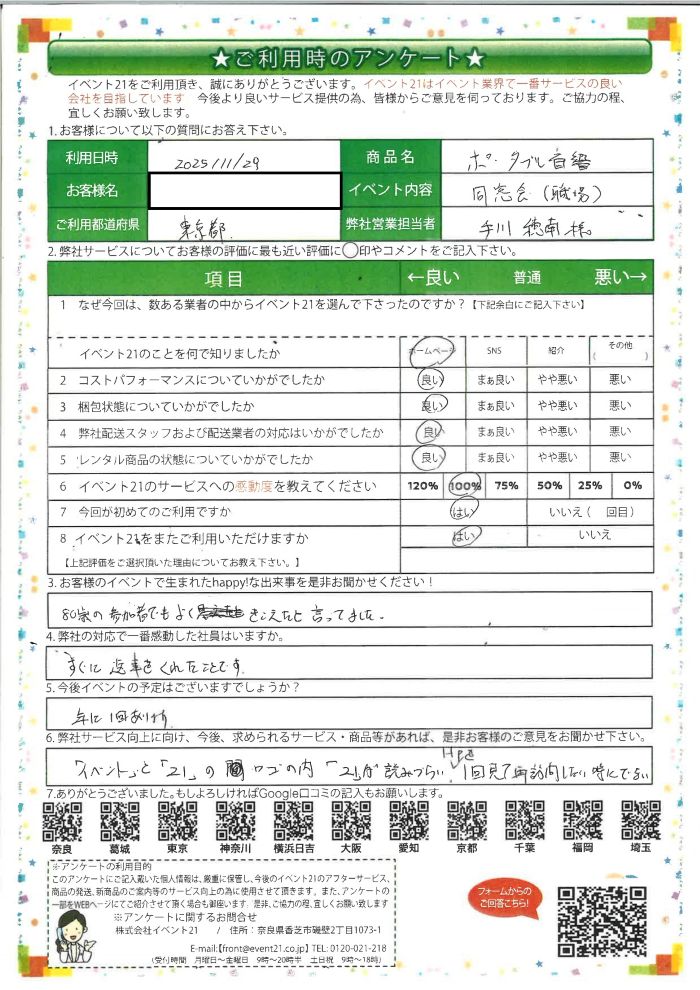 ★ご利用時のアンケート★
イベント21をご利用頂き、誠にありがとうございます。イベント21はイベント業界で一番サービスの良い
会社を目指しています 今後より良いサービス提供の為、皆様からご意見を伺っております。ご協力の程、
宜しくお願い致します。
1.お客様について以下の質問にお答え下さい。
利用日時 2025/11/29 商品名 ポータブル音響
お客様名 イベント内容 同窓会(職場)
ご利用都道府県 東京都 弊社営業担当者 手川 穂南 様
2.弊社サービスについてお客様の評価に最も近い評価に◯印やコメントをご記入下さい。
項目 ←良い 普通 悪い→
1 なぜ今回は、数ある業者の中からイベント21を選んで下さったのですか?【下記余白にご記入下さい】
イベント21のことを何で知りましたか ホームページ SNS 紹介 その他( )
2 コストパフォーマンスについていかがでしたか 良い まぁ良い やや悪い 悪い
3 梱包状態についていかがでしたか 良い まぁ良い やや悪い 悪い
4 弊社配送スタッフおよび配送業者の対応はいかがでしたか 良い まぁ良い やや悪い 悪い
5 レンタル商品の状態についていかがでしたか 良い まぁ良い やや悪い 悪い
6 イベント21のサービスへの感動度を教えてください 120% 100% 75% 50% 25% 0%
7 今回が初めてのご利用ですか はい いいえ( 回目)
8 イベント21をまたご利用いただけますか はい いいえ
【上記評価をご選択頂いた理由についてお教え下さい。】
3.お客様のイベントで生まれたhappy!な出来事を是非お聞かせください!
80歳の参加者でもよく きこえたと言ってました。
4.弊社の対応で一番感動した社員はいますか。
すぐに返事をくれたことです
5.今後イベントの予定はございますでしょうか?
年に1回あります
6.弊社サービス向上に向け、今後、求められるサービス・商品等があれば、是非お客様のご意見をお聞かせ下さい。
「イベント」と「21」の ロゴの内 「21」が読みづらい 1回見て再訪問したい時にできない
7.ありがとうございました。もしよろしければGoogle口コミの記入もお願いします。
奈良 葛城 東京 神奈川 横浜日吉 大阪 愛知 京都 千葉 福岡 埼玉
※アンケートの利用目的
このアンケートにご記入戴いた個人情報は、厳重に保管し、今後のイベント21のアフターサービス、
商品の発送、新商品のご案内等のサービス向上の為に使用させて頂きます。また、アンケートの
一部をWEBページにてご紹介させて頂く場合も御座います 是非、ご協力の程、宜しくお願い致します
※アンケートに関するお問合せ
株式会社イベント21 / 住所:奈良県香芝市磯壁2丁目1073-1
E-mail:【front@event21.co.jp】 TEL: 0120-021-218
(受付時間 月曜日〜金曜日 9時〜20時半 土日祝 9時〜18時)
フォームからの
ご回答こちら!